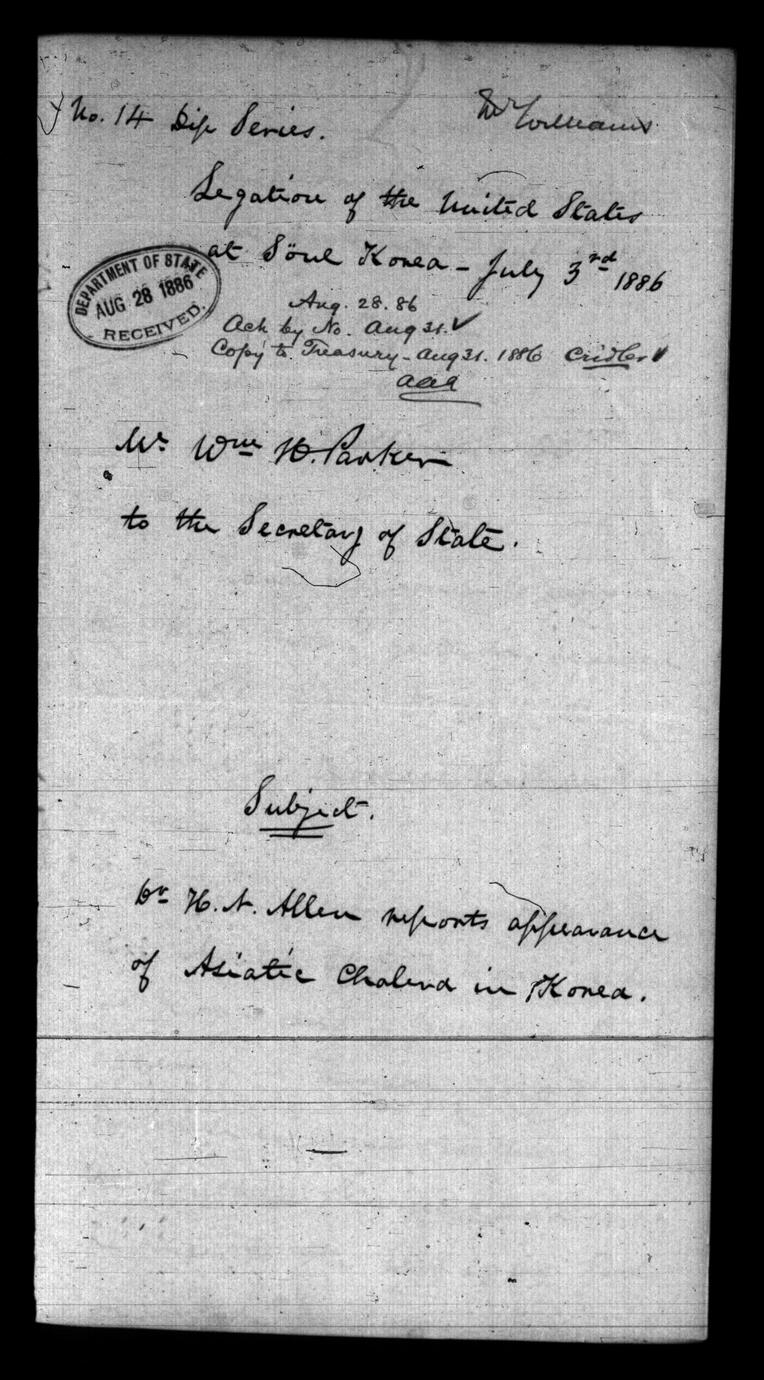 No. 14 Dip Series.
Mr Williams
Legation of the United States
at Söul Korea - July 3rd 1886
DEPARTMENT OF STATE
AUG 28 1886
RECEIVED.
Aug. 28. 86
Ack by No. Aug 31. ✓
Copy to Treasury - Aug 31. 1886 Cridler ✓
Mr Wm H. Parker
to the Secretary of State.
Subject.
Dr H. N. Allen reports appearance
of Asiatic Cholera in Korea.